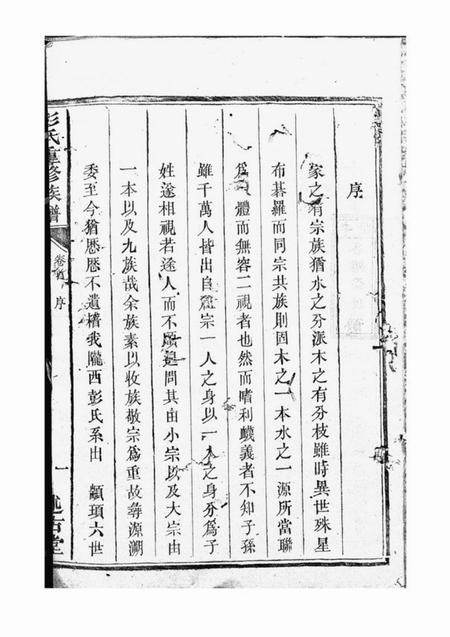 序
家之有宗族猶水之分派木之有分枝雖時異世殊星
布碁羅而同宗共族則固木之一本水之一源所當聯
為一體而無容二視者也然而嗜利蠛義者不知子孫
雖千萬人皆出自宗一人之身以一人之身分為子
姓遂相視若途人而不問其由小宗以及大宗由
一本以及九族哉余族素以收族敬宗為重故尋源溯
委至今猶歷歷不遺稽我隴西彭氏系由 顓頊六世
彭氏重修族譜
卷首 序
一
述古堂